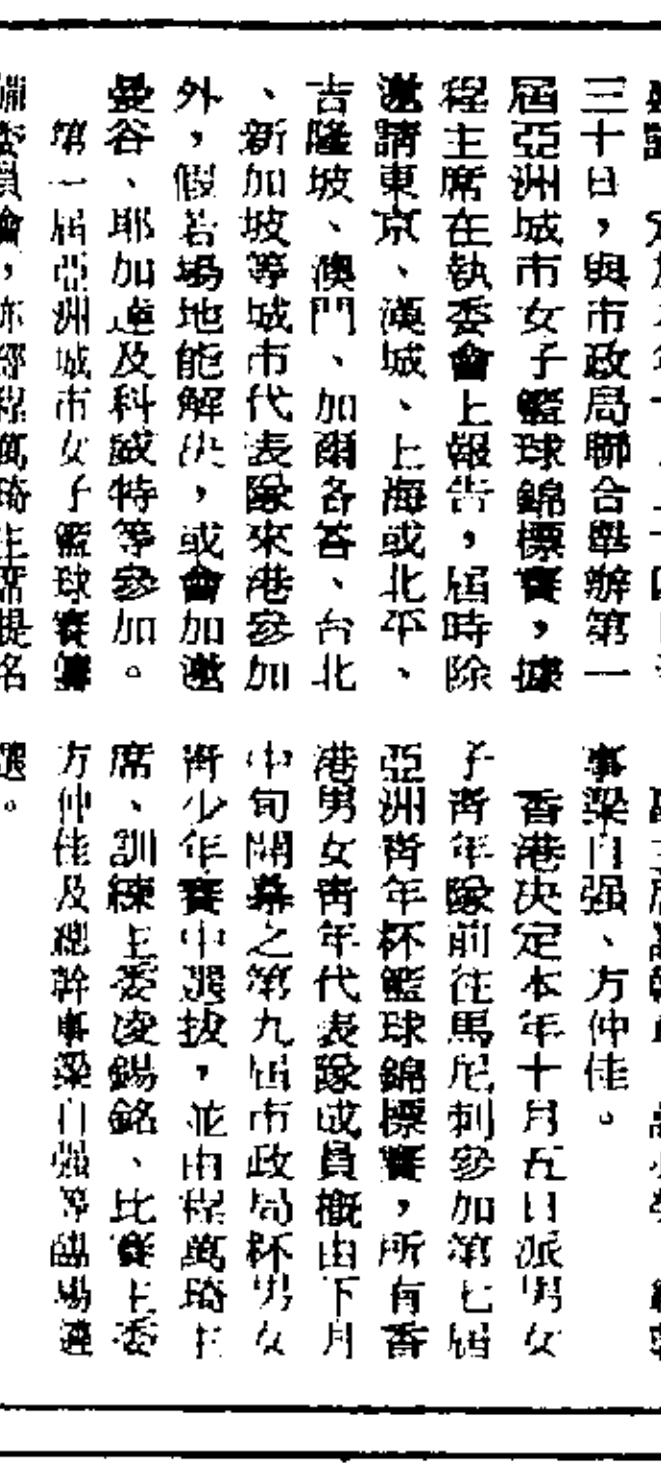 三十日，與市政局聯合舉辦第一
屆亞洲城市女子籃球錦標賽，據
程主席在執委會上報告，屆時除
邀請東京、漢城、上海或北平、
吉隆坡、澳門、加爾各答、台北
、新加坡等城市代表隊來港參加
外，假若場地能解决，或會加邀
曼谷、耶加達及科威特等參加。
第一屆亞洲城市女子籃球賽籌
委員會，亦經程萬琦主席提名
事梁自强、方仲佳。
香港决定本年十月五日派男女
子青年隊前往馬尼刺參加第七屆
亞洲青年杯籃球錦標賽，所有香
港男女青年代表隊成員概由下月
中旬開幕之第九屆市政局杯男女
青少年賽中選拔，並由程萬琦主
席、訓練主委凌錫銘、比賽主委
方仲佳及總幹事梁自强等臨場遴
選。